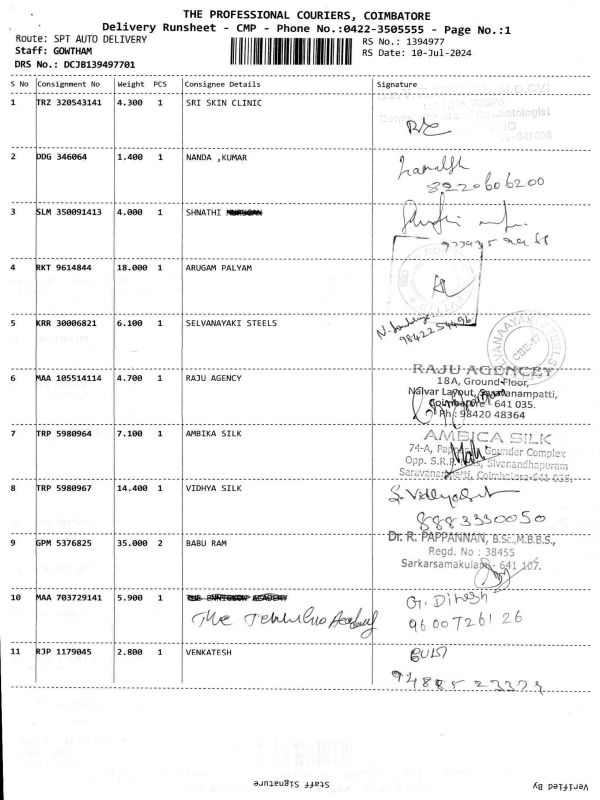 THE PROFESSIONAL COURIERS, COIMBATORE
Delivery Runsheet - CMP - Phone No.:0422-3505555 - Page No.:1
Route: SPT AUTO DELIVERY
RS No.: 1394977
Staff: GOWTHAM
RS Date: 10-Jul-2024
DRS No.: DCJB139497701
S No Consignment No Weight PCS Consignee Details Signature
1 TRZ 320543141 4.300 1 SRI SKIN CLINIC
2 DDG 346064 1.400 1 NANDA ,KUMAR
8220606200
3 SLM 350091413 4.000 1 SHNATHI
4 RKT 9614844 18.000 1 ARUGAM PALYAM
9842254496
5 KRR 30006821 6.100 1 SELVANAYAKI STEELS
CBE-17
6 MAA 105514114 4.700 1 RAJU AGENCY
RAJU AGENCEY
18A, Ground Floor,
Nalvar Layout, Saravanampatti,
Coimbatore - 641 035.
Ph : 98420 48364
7 TRP 5980964 7.100 1 AMBIKA SILK
AMBICA SILK
74-A, Gounder Complex
Opp. S.R.P. Mills, Sivanandhapuram
Saravanampatti, Coimbatore-641 035.
8 TRP 5980967 14.400 1 VIDHYA SILK
8883330050
9 GPM 5376825 35.000 2 BABU RAM
Dr. R. PAPPANNAN, B.Sc.,M.B.B.S.,
Regd. No : 38455
Sarkarsamakulam - 641 107.
10 MAA 703729141 5.900 1
The Academy
G. Dinesh
9600726126
11 RJP 1179045 2.800 1 VENKATESH
94885 23379
Staff Signature
Verified By